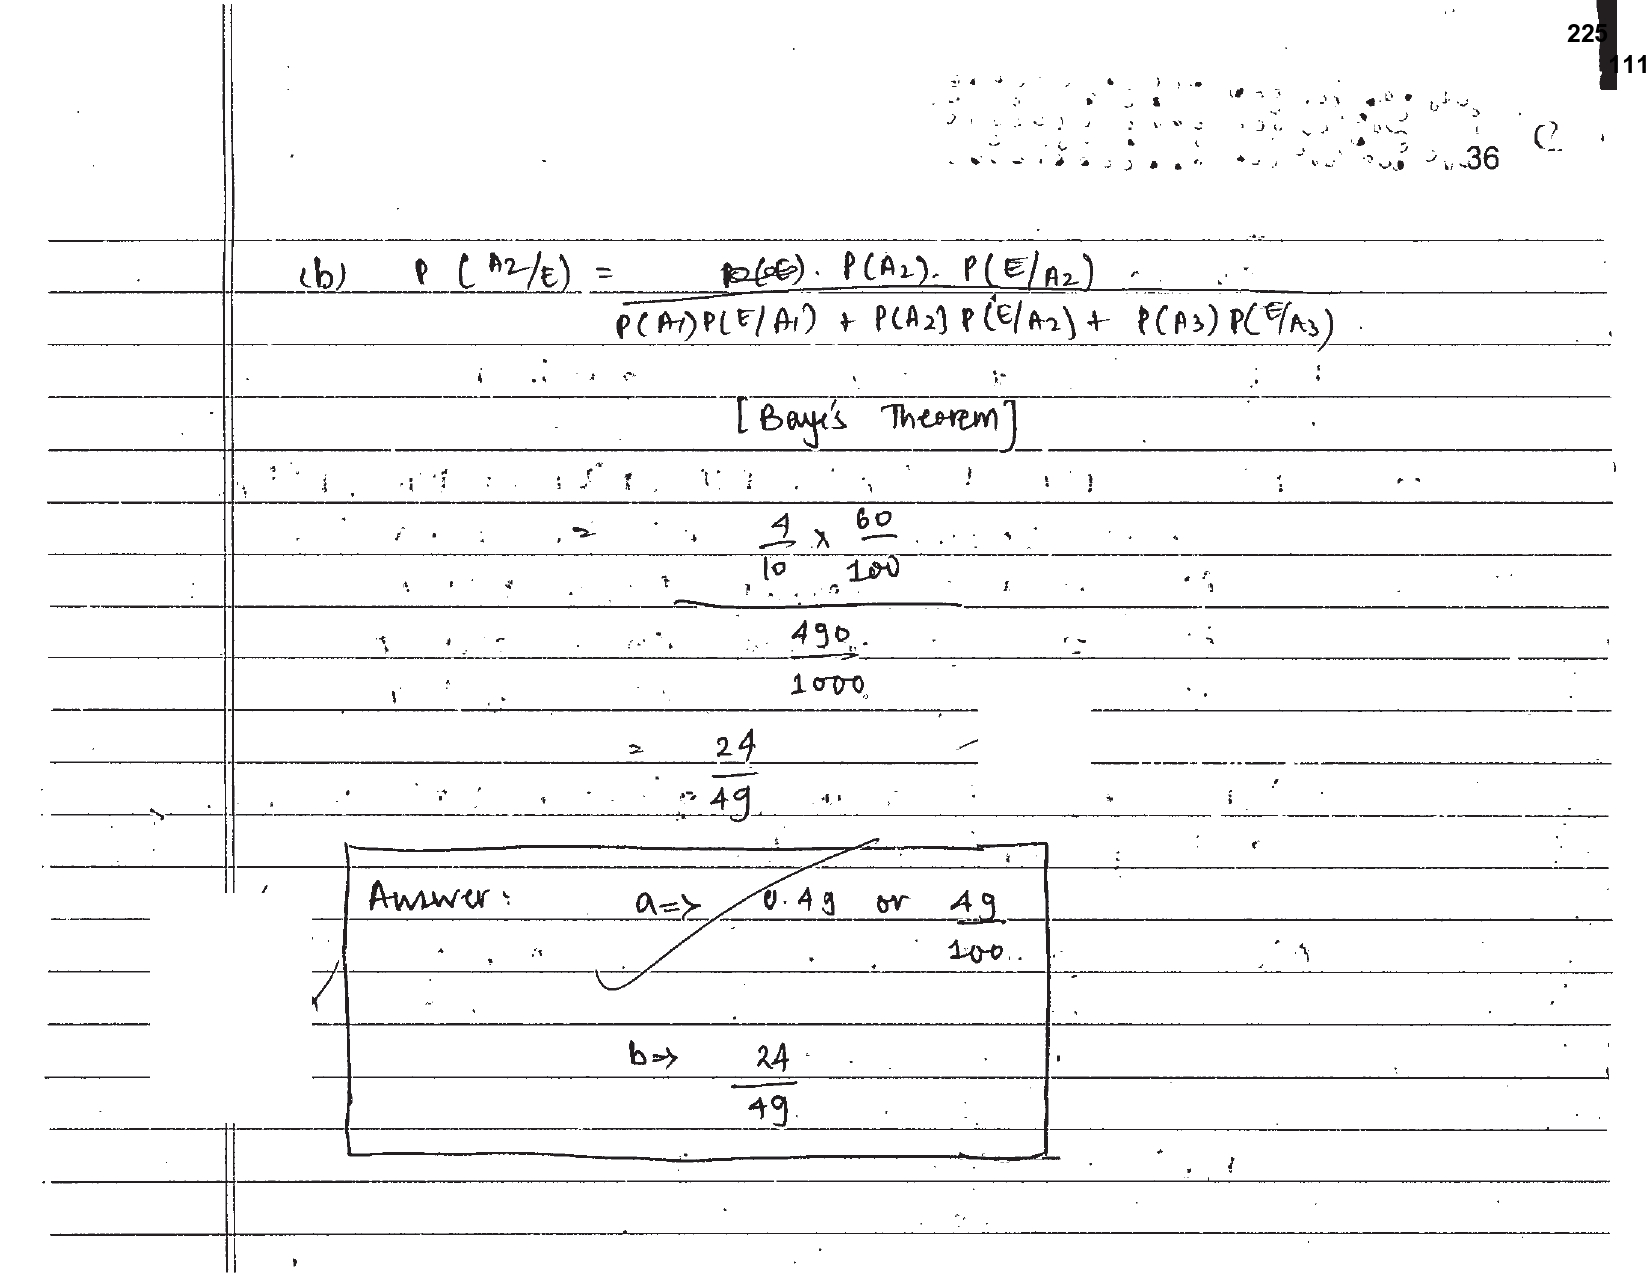 225
111
36
(b) P (A2/E) = P(A2). P(E/A2)
P(A1)P(E/A1) + P(A2) P(E/A2) + P(A3) P(E/A3)
[Baye's Theorem]
= 4/10 x 60/100
490
1000
= 24
49
Answer: a=> 0.49 or 49/100
b=> 24
49